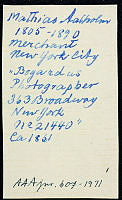 Mathias Aalholm
1805-1890
Merchant
New York City
"Bogardus
Photographer
363 Broadway
New York
No 21440"
Ca 1861
AAA
1971